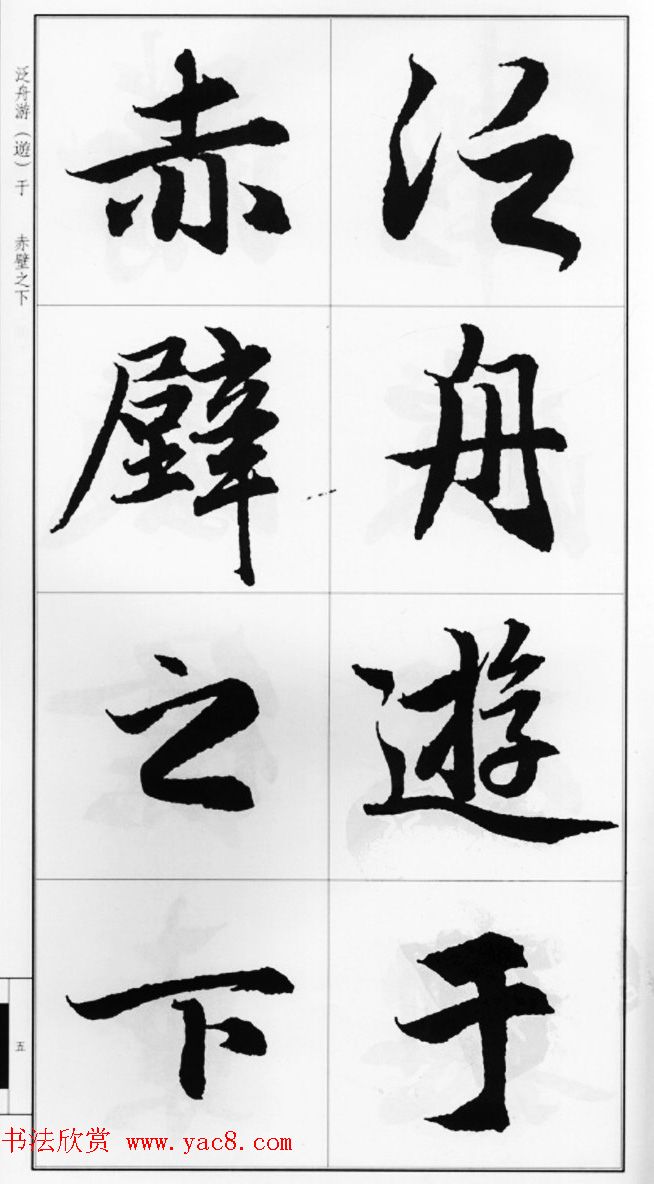 泛舟遊于
赤壁之下
泛舟游（遊）于　赤壁之下
五
书法欣赏 www.yac8.com